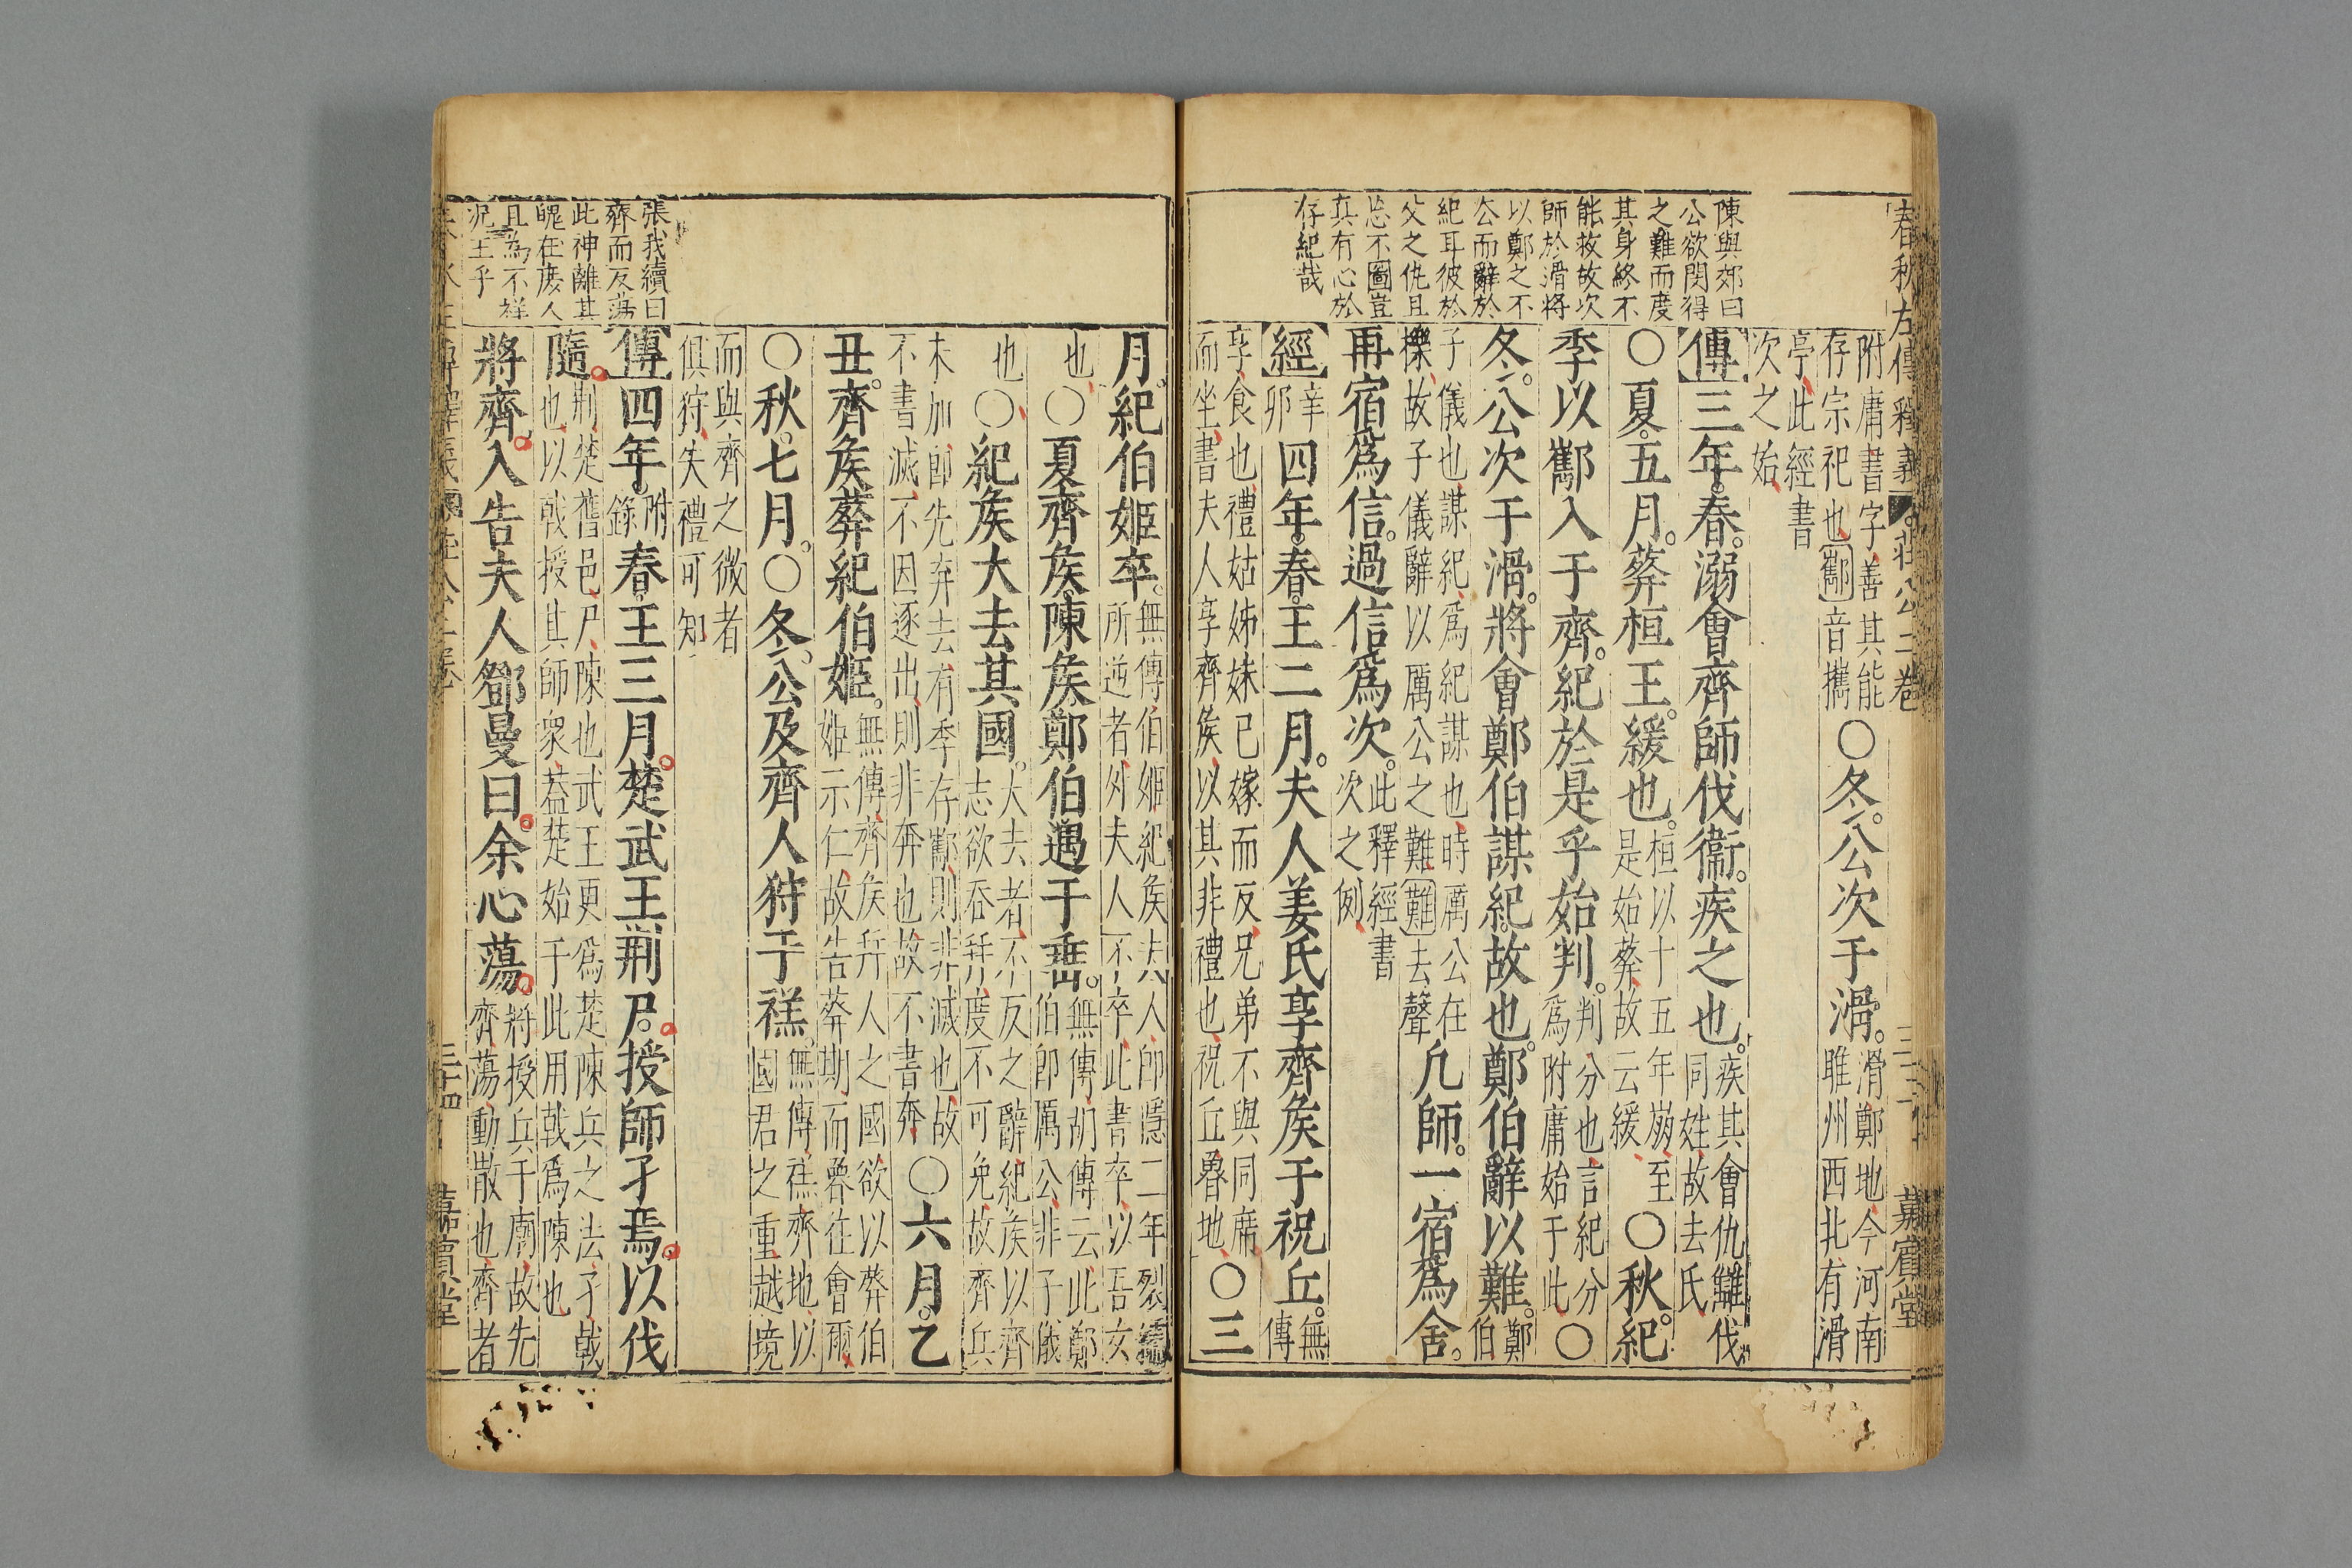 春秋左傳釋義 莊公二卷 三十 嘉賓堂
陳與郊曰
公欲閔得
之難而度
其身終不
能救故次
師於滑將
以鄭之不
公而辭於
紀耳彼於
父之仇且
忘不圖豈
真有心於
存紀哉
附庸書字善其能
存宗祀也酅音攜
○冬公次于滑
滑鄭地今河南
睢州西北有滑
亭此經書
次之始
傳三年春溺會齊師伐衞疾之也
疾其會仇讎伐
同姓故去氏
○夏五月葬桓王緩也
桓以十五年崩至
是始葬故云緩
○秋紀
季以酅入于齊紀於是乎始判
判分也言紀分
爲附庸始于此
○
冬公次于滑將會鄭伯謀紀故也鄭伯辭以難
鄭
伯
子儀也謀紀爲紀謀也時厲公在
櫟故子儀辭以厲公之難難去聲
凡師一宿爲舍
再宿爲信過信爲次
此釋經書
次之例
經
辛
卯
四年春王二月夫人姜氏享齊侯于祝丘
無
傳
享食也禮姑姊妹已嫁而反兄弟不與同席
而坐書夫人享齊侯以其非禮也祝丘魯地
○三
月紀伯姬卒
無傳伯姬紀侯夫人卽隱二年裂繻
所逆者外夫人不卒此書卒以吾女
也○夏齊侯陳侯鄭伯遇于垂
無傳胡傳云此鄭
伯卽厲公非子儀
也○紀侯大去其國
大去者不反之辭紀侯以齊
志欲吞幷度不可免故齊兵
未加卽先弃去有季存酅則非滅也故
不書滅不因逐出則非奔也故不書奔
○六月乙
丑齊侯葬紀伯姬
無傳齊侯幷人之國欲以葬伯
姬示仁故告葬期而魯往會爾
○秋七月○冬公及齊人狩于禚
無傳禚齊地以
國君之重越境
而與齊之微者
俱狩失禮可知
傳四年
附
錄
春王三月楚武王荆尸授師孑焉以伐
隨
荆楚舊邑尸陳也武王更爲楚陳兵之法孑戟
也以戟授其師衆葢楚始于此用戟爲陳也
將齊入告夫人鄧曼曰余心蕩
將授兵于廟故先
齊蕩動散也齊者
張我續曰
齊而反蕩
此神離其
魄在庶人
且為不祥
況王乎
三十四 嘉賓堂